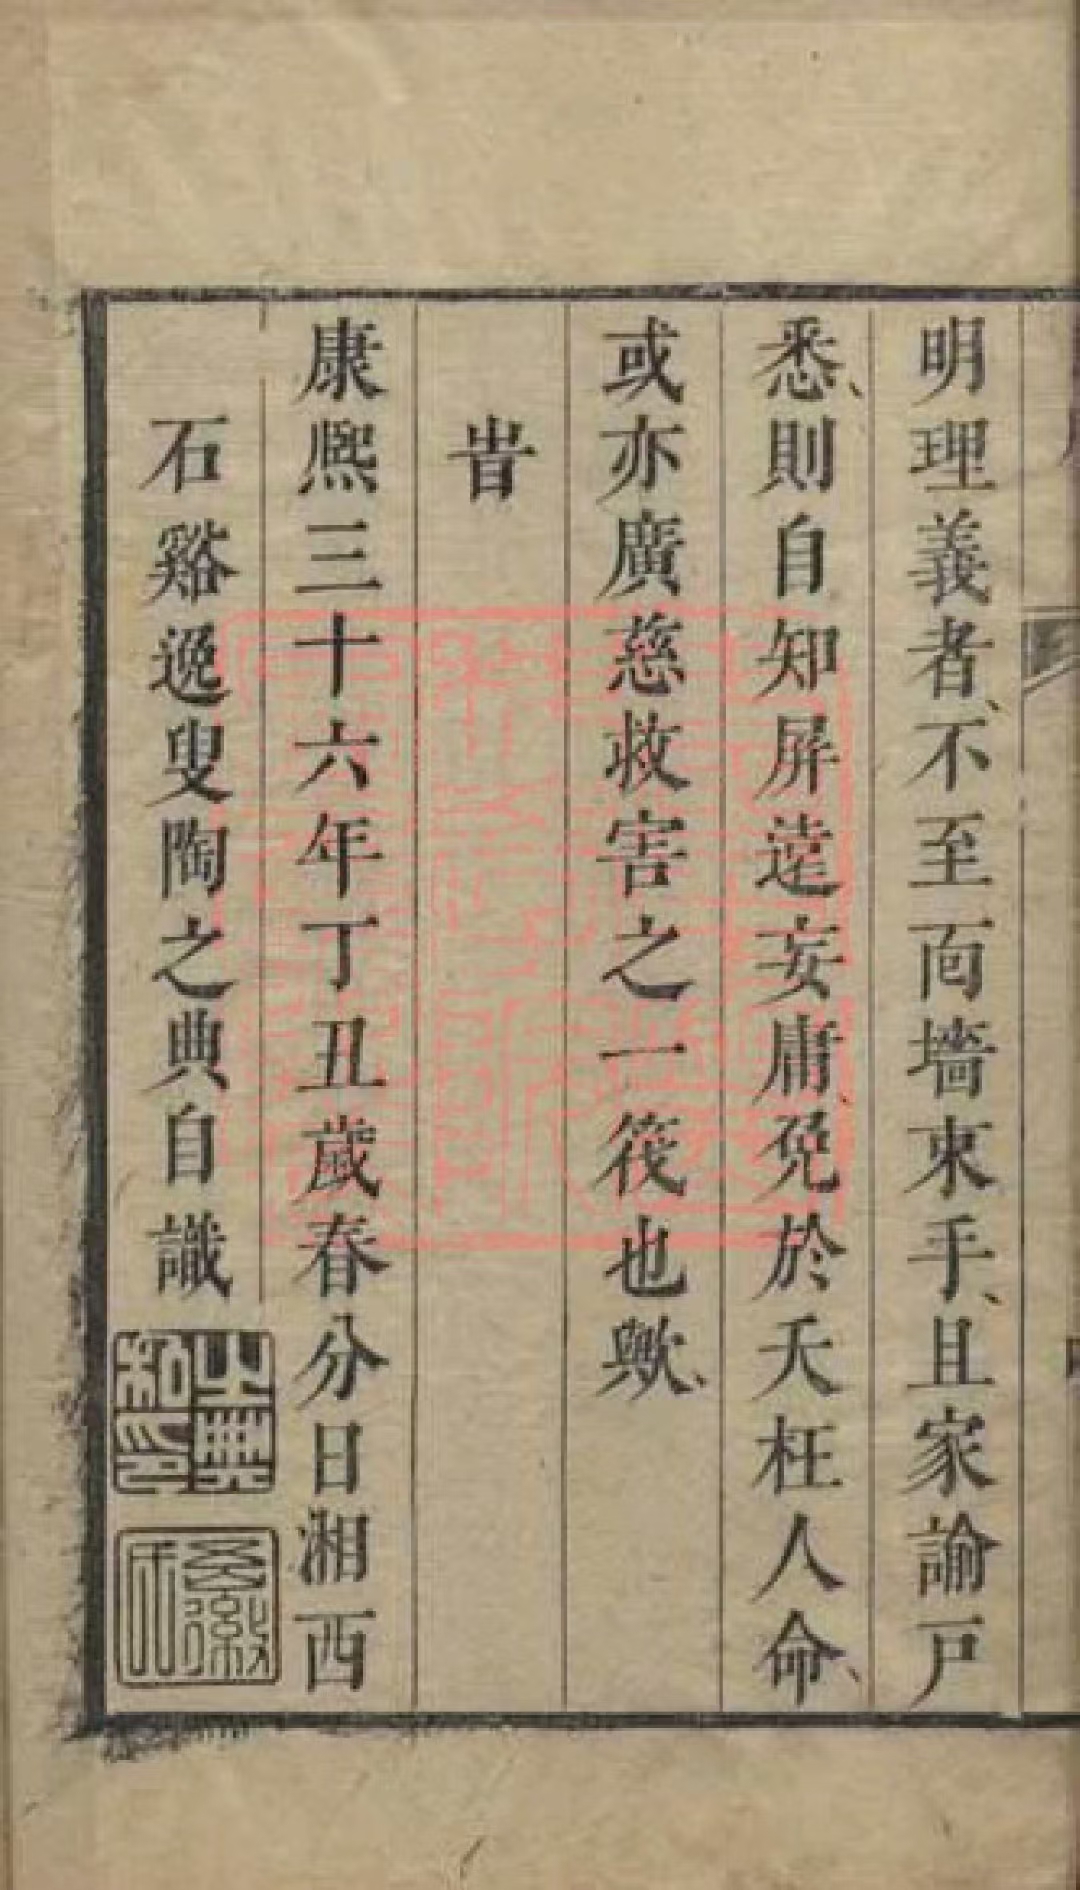 明理義者、不至面墻束手、且家諭戸
悉、則自知屏遠妄庸、免於夭枉人命、
或亦廣慈救害之一筏也歟、
旹
康熈三十六年丁丑歲春分日湘西
石谿逸叟陶之典自識